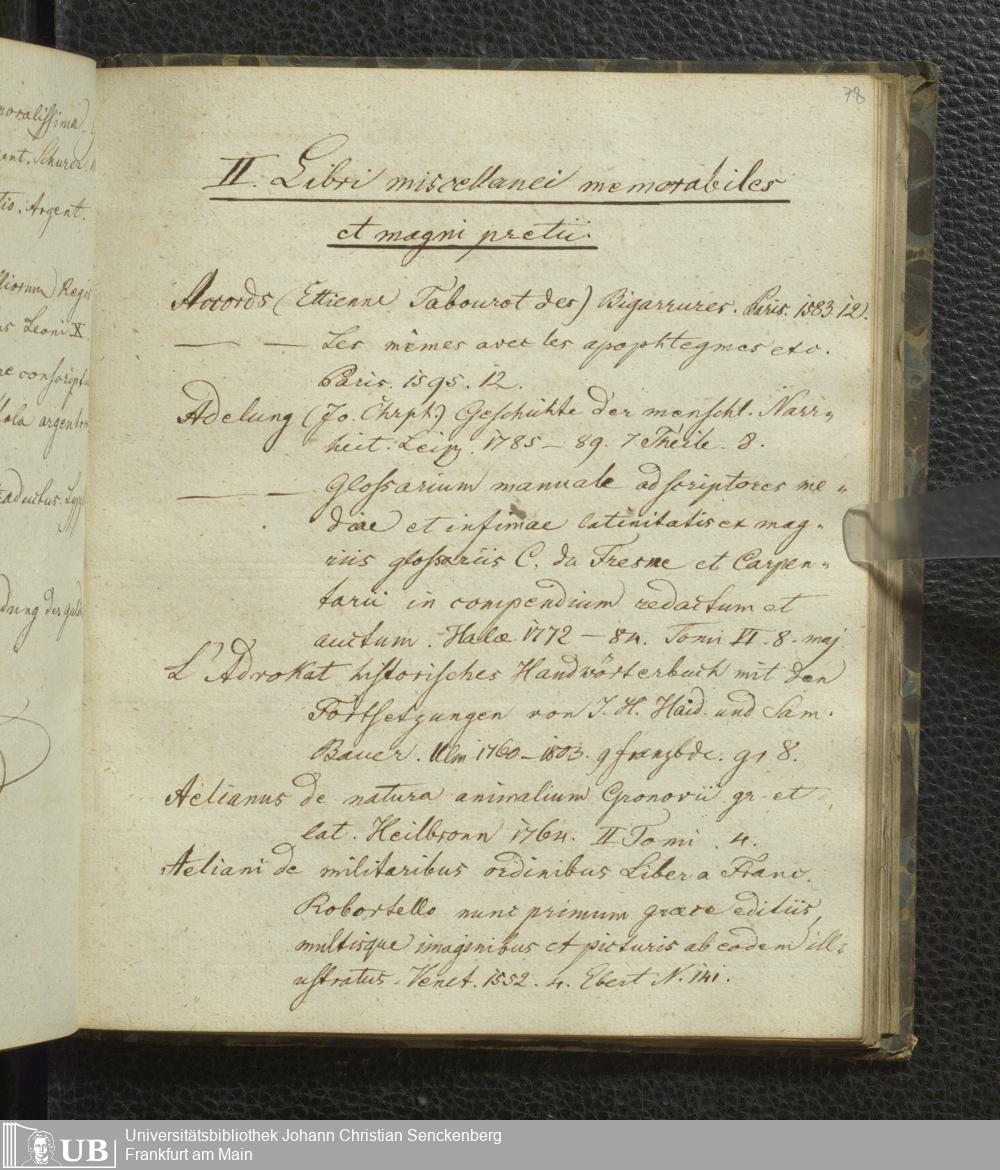 moralissima.
ent. Schurer
tio. Argent.
liorum) Regis
us Leoni X.
re conscript
lola argentor
raductus. Lypf
dung der guld
78
II. Libri miscellanei memorabiles
et magni pretii.
Accords (Ettienne Tabourot des) Bigarrures. Paris. 1583 12).
— — Les mêmes avec les apophtegmes etc.
Paris. 1595. 12.
Adelung (Jo. Chrph.) Geschichte der menschl. Narr„
heit. Leipz. 1785 – 89. 7 Theile. 8.
— — Glossarium manuale ad scriptores me„
diae et infimae latinitatis ex mag„
niis glossariis C. du Fresne et Carpen„
tarii in compendium redactum et
auctum. Halae 1772 – 84. Tomi VI. 8. maj.
L'Advokat historisches Handwörterbuch mit den
Fortsetzungen von J. H. Haid. und Sam.
Bauer. Ulm 1760 – 1803. 9 franzbde. gr 8.
Aelianus de natura animalium Gronovii gr. et
lat. Heilbronn 1764. II Tomi. 4.
Aeliani de militaribus ordinibus Liber a Franc.
Robortello nunc primum graece editiis,
multisque imaginibus et picturis ab eodem ill„
ustratus. Venet. 1552. 4. Ebert N. 141.
UB
Universitätsbibliothek Johann Christian Senckenberg
Frankfurt am Main